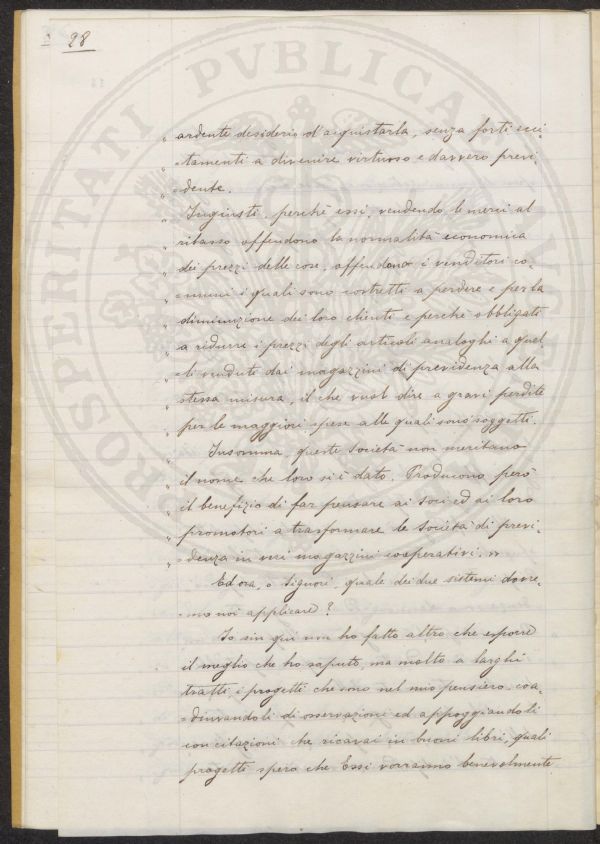 28
„ ardente desiderio d'acquistarla, senza forti ecci-
„ -tamenti a divenire virtuoso e davvero previ-
„ -dente.
„ Ingiusti, perchè essi, vendendo le merci al
„ ribasso offendono la normalità economica
„ dei prezzi delle cose, offendono i venditori co-
„ -muni i quali sono costretti a perdere e per la
„ diminuzione dei loro clienti e perchè obbligati
„ a ridurre i prezzi degli articoli analoghi a quel
„ li venduti dai magazzini di previdenza alla
„ stessa misura, il che vuol dire a gravi perdite
„ per le maggiori spese alle quali sono soggetti.
„ Insomma, queste società non meritano
„ il nome che loro si è dato. Producono però
„ il benefizio di far pensare ai soci ed ai loro
„ promotori a trasformare le società di previ-
„ denza in veri magazzini cooperativi. „
Ed ora, o Signori, quale dei due sistemi dovre-
-mo noi applicare?
Io sin qui non ho fatto altro che esporre
il meglio che ho saputo, ma molto a larghi
tratti i progetti che sono nel mio pensiero, coa-
-diuvandoli di osservazioni ed appoggiandoli
con citazioni che ricavai in buoni libri, quali
progetti spero che Essi vorranno benevolmente
PROSPERITATI PVBLICAE